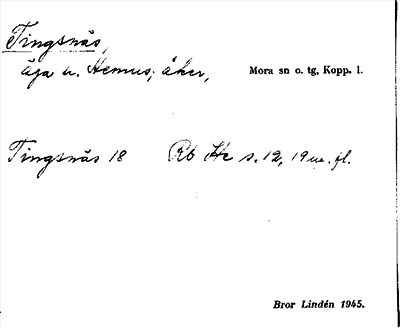 Tingsnäs,
äga u. Hemus; åker, Mora sn o. tg, Kopp. l.
Tingsnäs 18 Rb Hc s. 12, 19 m. fl.
Bror Lindén 1945.